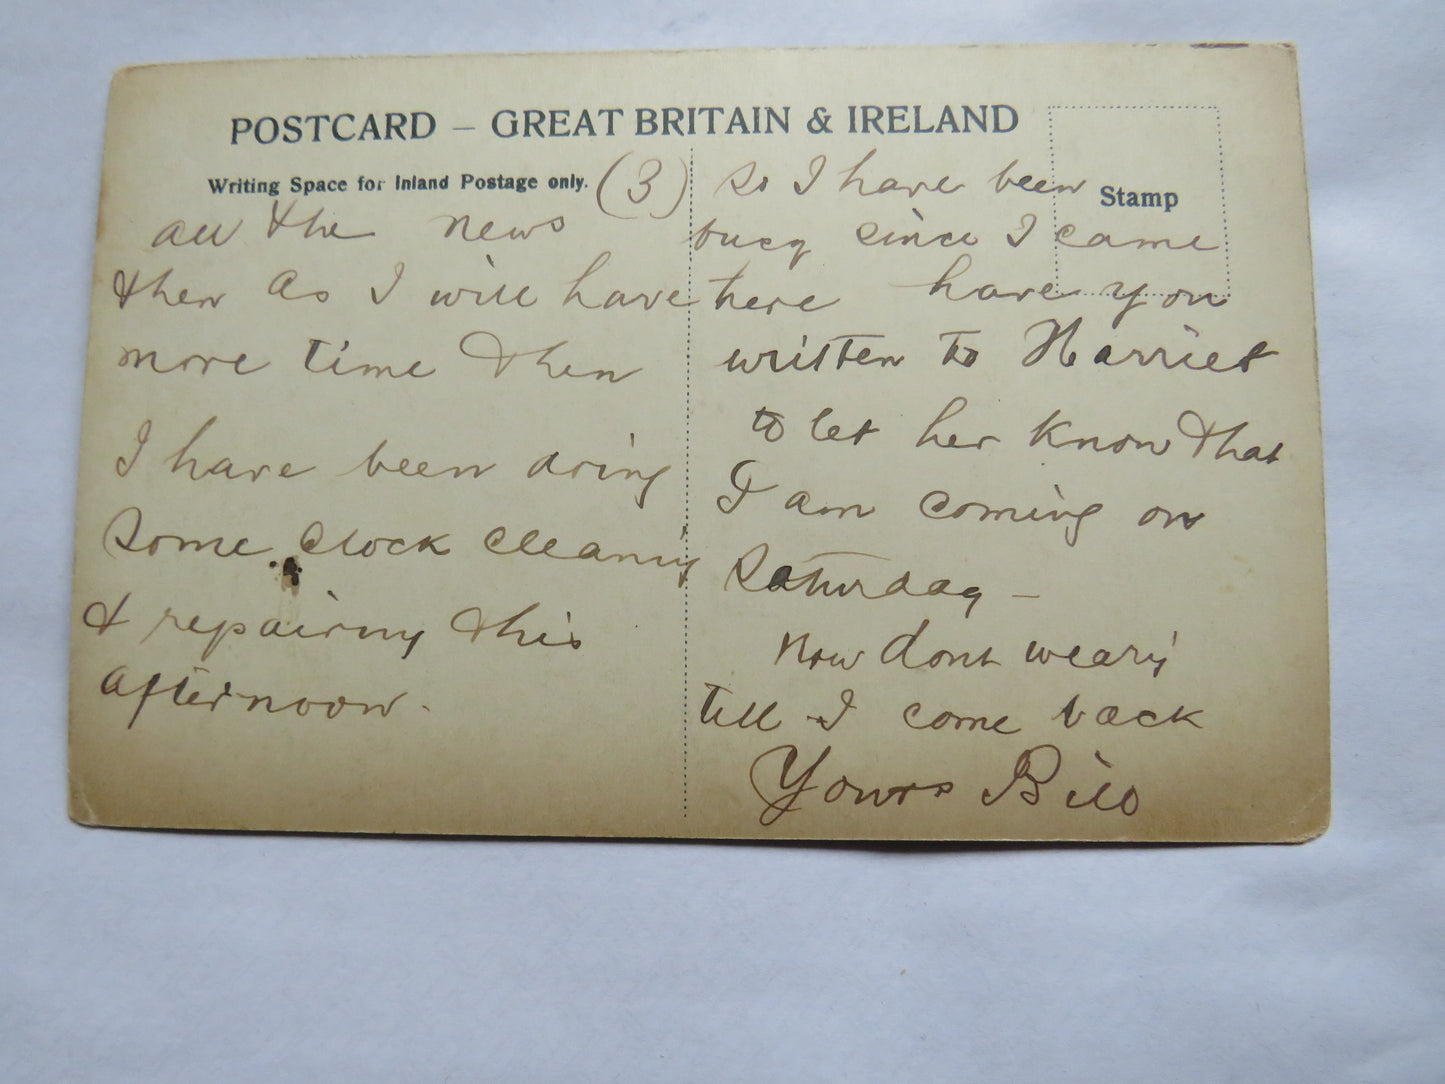 POSTCARD – GREAT BRITAIN & IRELAND
Writing Space for Inland Postage only.
Stamp
(3)
all the news
then as I will have
more time then
I have been doing
some clock cleaning
& repairing this
afternoon.
so I have been
busy since I came
here have you
written to Harriet
to let her know that
I am coming on
Saturday –
Now dont weary
till I come back
Yours Bill